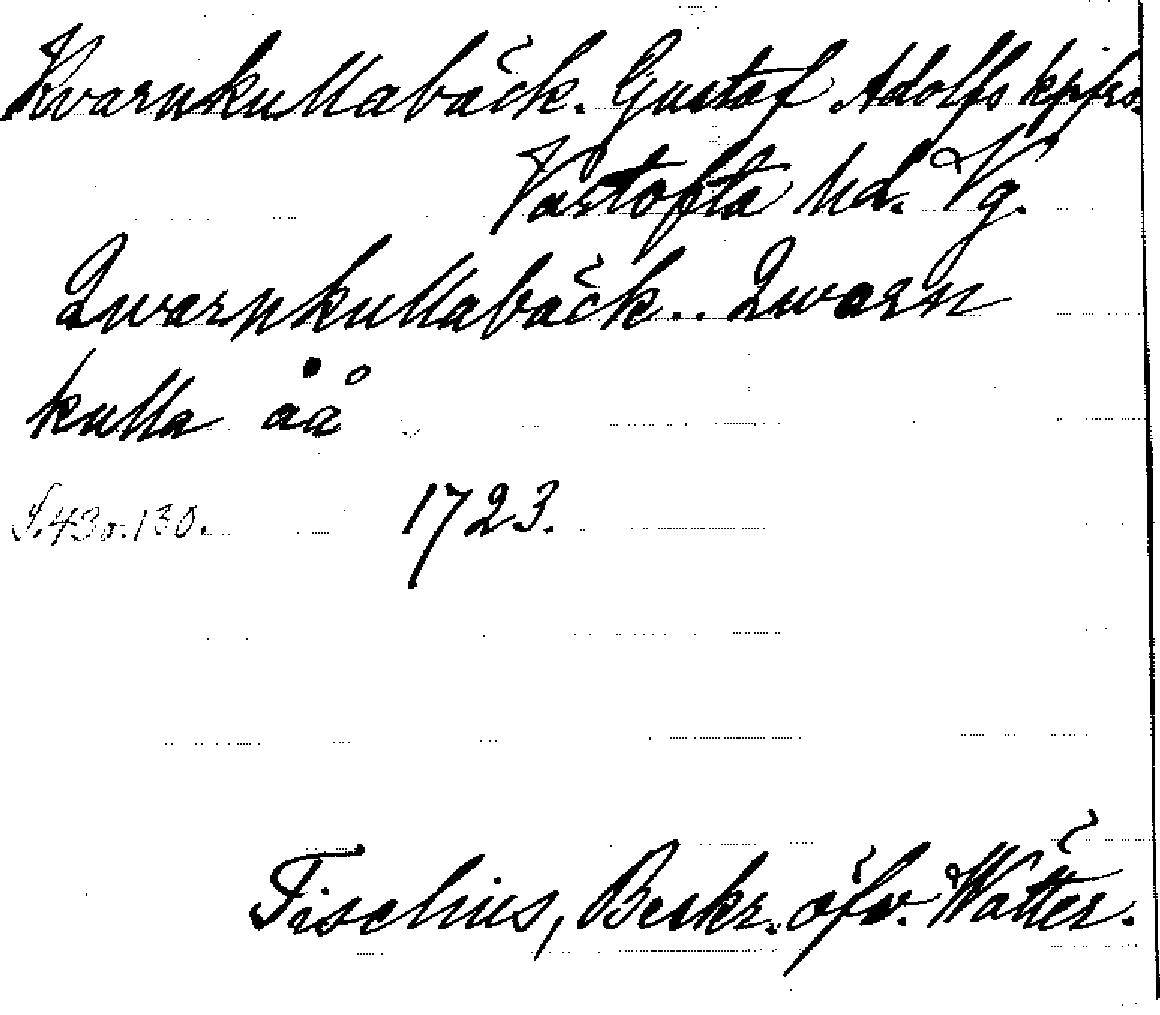 Kvarnkullabäck. Gustaf Adolfs kpfrs.
Vartofta hd. Vg.
Qwarnkullabäck.. Qwarn
kulla åå
S. 43 o. 130. 1723.
Tiselius, Beskr. öfv. Wätter.